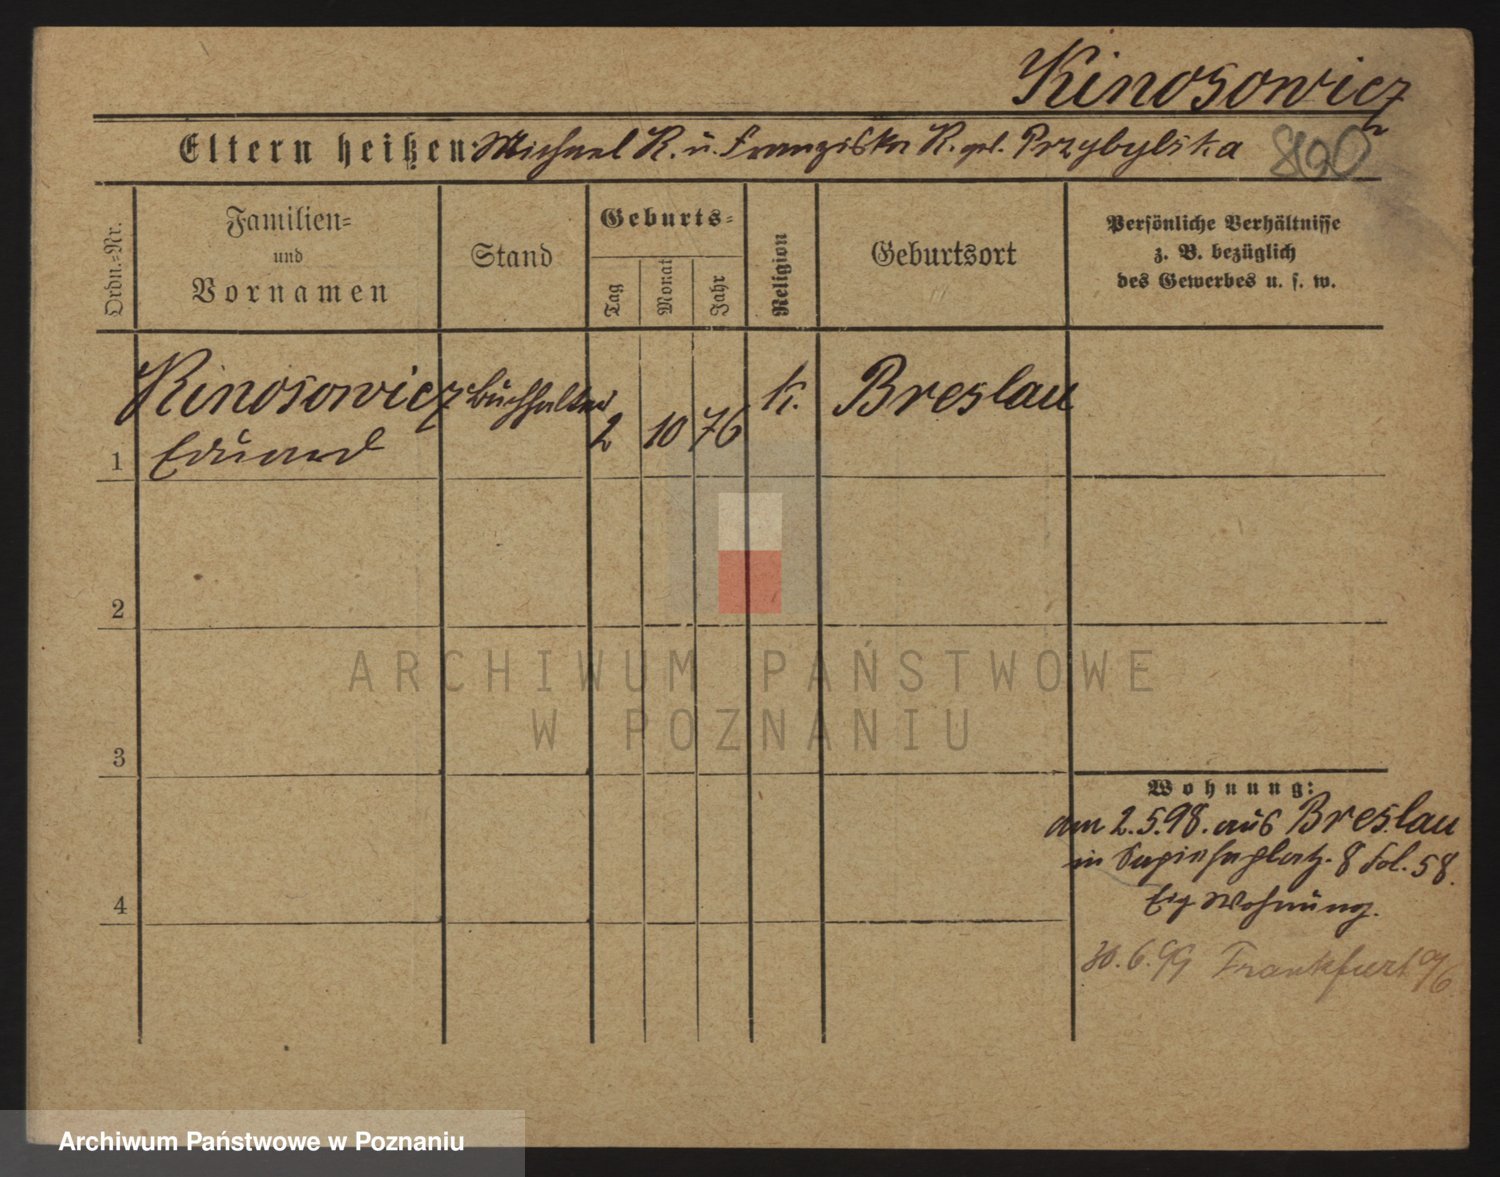 Kinosowicz
Eltern heißen: Michael K. u. Franziska K. geb. Przybylska
890
Ordn.-Nr.
Familien-
und
Vornamen
Stand
Geburts-
Tag
Monat
Jahr
Religion
Geburtsort
Persönliche Verhältnisse
z. B. bezüglich
des Gewerbes u. s. w.
1
Kinosowicz
Eduard
Buchhalter
2
10
76
k.
Breslau
2
3
4
ARCHIWUM PAŃSTWOWE
W POZNANIU
Wohnung:
am 2.5.98. aus Breslau
in Sapiehaplatz. 8 Fol. 58.
Eig Wohnung.
30.6.99 Frankfurt a/O
Archiwum Państwowe w Poznaniu